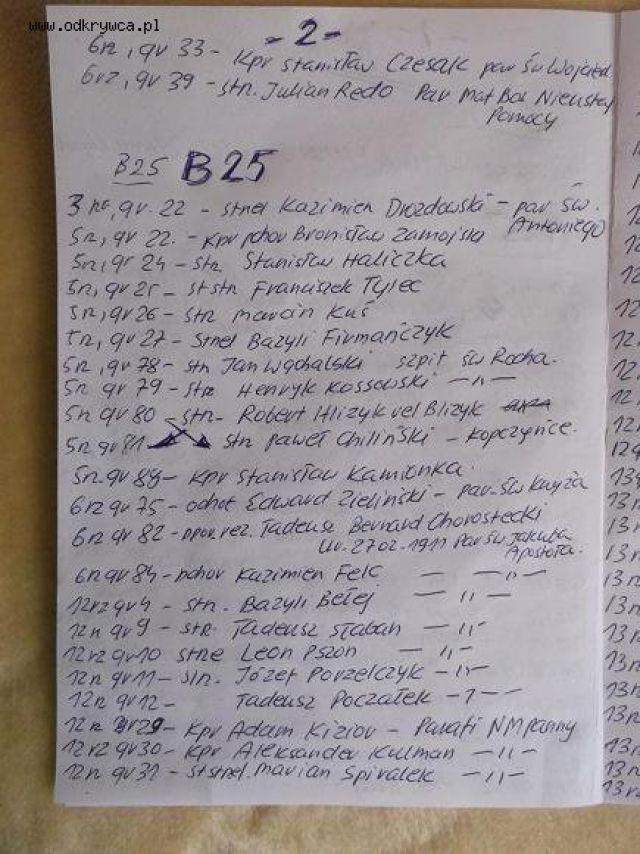 www.odkrywca.pl
- 2 -
6rz, gr 33 - Kpr Stanisław Czesak par św Wojciech
6rz, gr 39 - str. Julian Redo Par Mat Bos Nieustaj
Pomocy
B25 B25
3 rz, gr. 22 - strzel Kazimierz Drozdowski - par św.
Antoniego
5rz, gr 22. - kpr pchor Bronisław Zamojski
5rz, gr 24 - str. Stanisław Haliczka
5rz, gr 25 - st str Franciszek Tylec
5rz, gr 26 - str Marcin Kuś
5rz, gr 27 - strzel Bazyli Firmańczyk
5rz, gr 78 - str Jan Wąchalski szpit św Rocha.
5rz gr 79 - str Henryk Kossowski - " -
5rz gr 80 - str - Robert Hlizyk vel Blizyk
5rz gr 81 str Paweł Chiliński - Kopczyńce.
5rz gr 84 - kpr Stanisław Kamionka.
6rz gr 75 - ochot Edward Zieliński - par - św Krzyża
6rz gr 82 - ppor. rez. Tadeusz Bernard Chorostecki
Ur. 27.02.1911 Par św. Jakuba
Apostoła.
6rz gr 84 - pchor Kazimierz Felc - - " -
12rz gr 4 - str. Bazyli Bełej - " -
12rz gr 9 - str. Tadeusz Słaban - " -
12rz gr 10 strze Leon Pszon - " -
12rz gr 11 - str. Józef Porzelczyk - " -
12rz gr 12 - Tadeusz Początek - " -
12rz gr 29 - Kpr Adam Kizior - Parafi NMPanny
12rz gr 30 - kpr Aleksander Kulman - " -
12rz gr 31 - st strzel. Marian Spiralek - " -